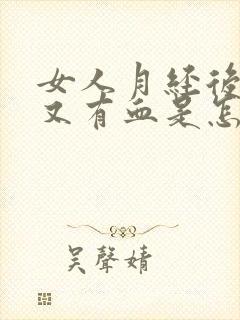 女人月经後
又有血是怎
吴聲婧